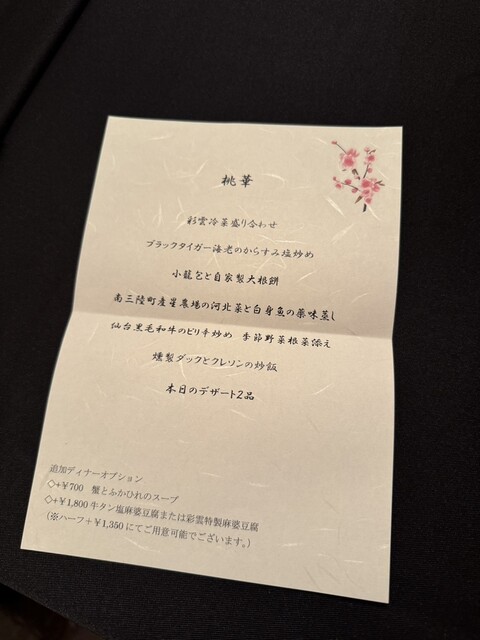 桃華
彩雲冷菜盛り合わせ
ブラックタイガー海老のからすみ塩炒め
小籠包と自家製大根餅
南三陸町産星農場の河北菜と白身魚の薬味蒸し
仙台黒毛和牛のピリ辛炒め 季節野菜根菜添え
燻製ダックとクレソンの炒飯
本日のデザート2品
追加ディナーオプション
◇+¥700 蟹とふかひれのスープ
◇+¥1,800 牛タン塩麻婆豆腐または彩雲特製麻婆豆腐
(※ハーフ+¥1,350 にてご用意可能でございます。)